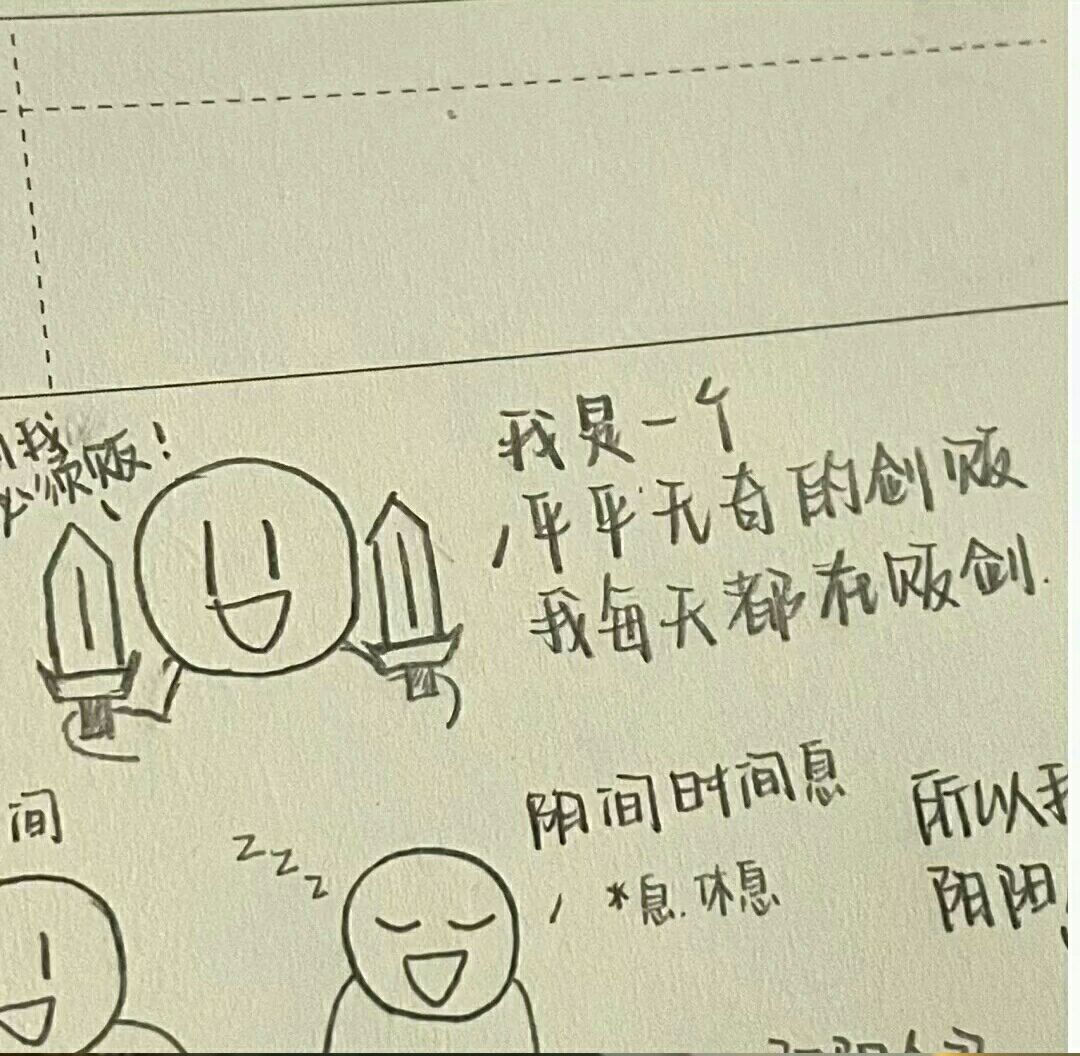 我
必须贩!
我是一个
平平无奇的剑贩
我每天都在贩剑.
间
zzz
阳间时间息
*息.休息
所以我
阳阳